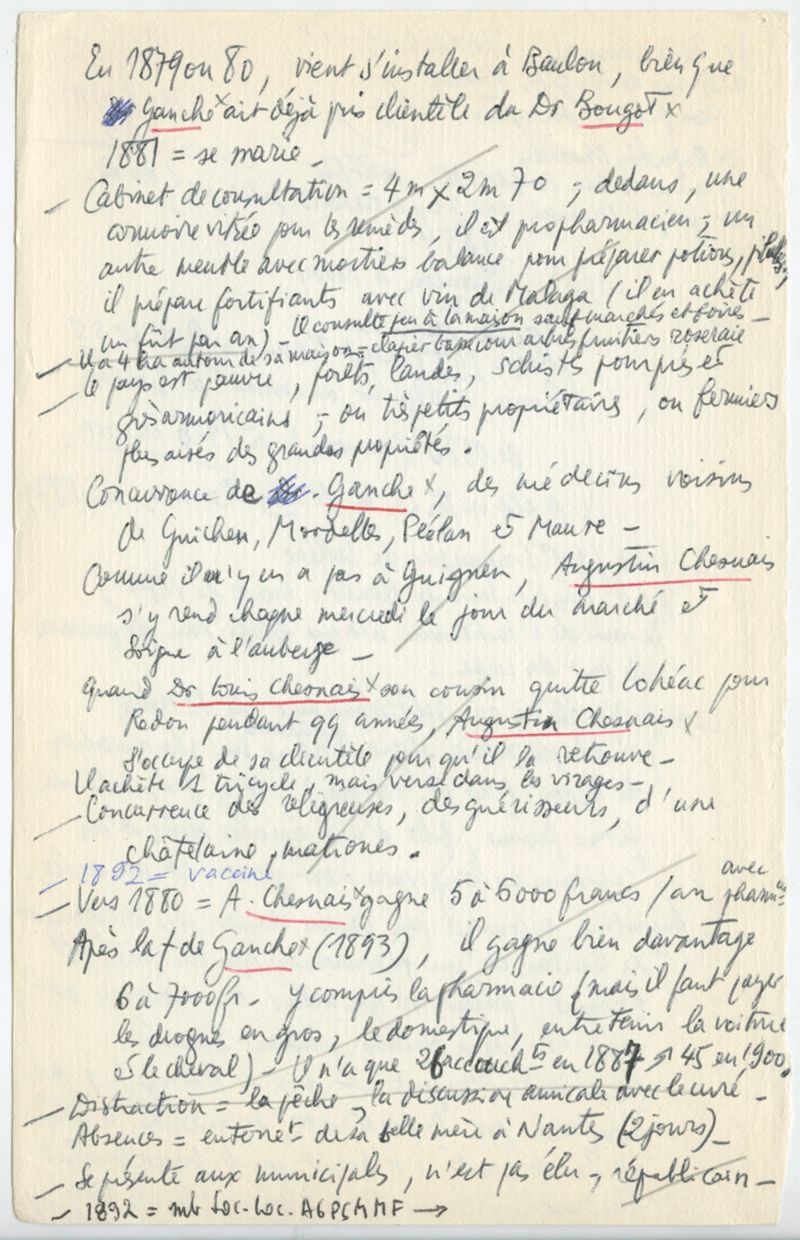 En 1879 ou 80, vient s'installer à Baulon, bien que
Ganche x ait déjà pris clientèle du Dr Bougot x
1881 = se marie -
- Cabinet de consultation = 4 m x 2 m 70 ; dedans, une
armoire vitrée pour les remèdes, il est propharmacien ; un
autre meuble avec mortiers balance pour préparer potions, pilules,
il prépare fortifiants avec vin de Malaga (il en achète
un fût par an) - Il consulte peu à la maison sauf marchés et foires -
- Il a 4 ha autour de sa maison = clapier basse cour arbres fruitiers roseraie
- Le pays est pauvre, forêts, landes, schistes pourprés et
grès armoricains ; - ou très petits propriétaires, ou fermiers
plus aisés des grandes propriétés.
Concurrence de Ganche x, des médecins voisins
de Guichen, Mordelles, Plélan et Maure -
Comme il n'y en a pas à Guignen, Augustin Chesnais
s'y rend chaque mercredi le jour du marché et
soigne à l'auberge -
Quand Dr Louis Chesnais x son cousin quitte Lohéac pour
Redon pendant qq années, Augustin Chesnais x
s'occupe de sa clientèle pour qu'il la retrouve -
Il achète 1 tricycle, mais verse dans les virages -
- Concurrence des religieuses, des guérisseurs, d'une
châtelaine, matrones.
- 1892 = vaccine
- Vers 1880 = A. Chesnais x gagne 5 à 6000 francs / an avec pharmie
Après la † de Ganche x (1893), il gagne bien davantage
6 à 7000 fr - y compris la pharmacie (mais il faut payer
les drogues en gros, le domestique, entretenir la voiture
et le cheval) - Il n'a que 26 accoucht en 1887 et 45 en 1900.
- Distraction = la pêche, la discussion amicale avec le curé -
Absences = enterret de sa belle mère à Nantes (2 jours) -
- Se présente aux municipales, n'est pas élu - républicain -
- 1892 = mb Soc. Loc. AGPSMMF →